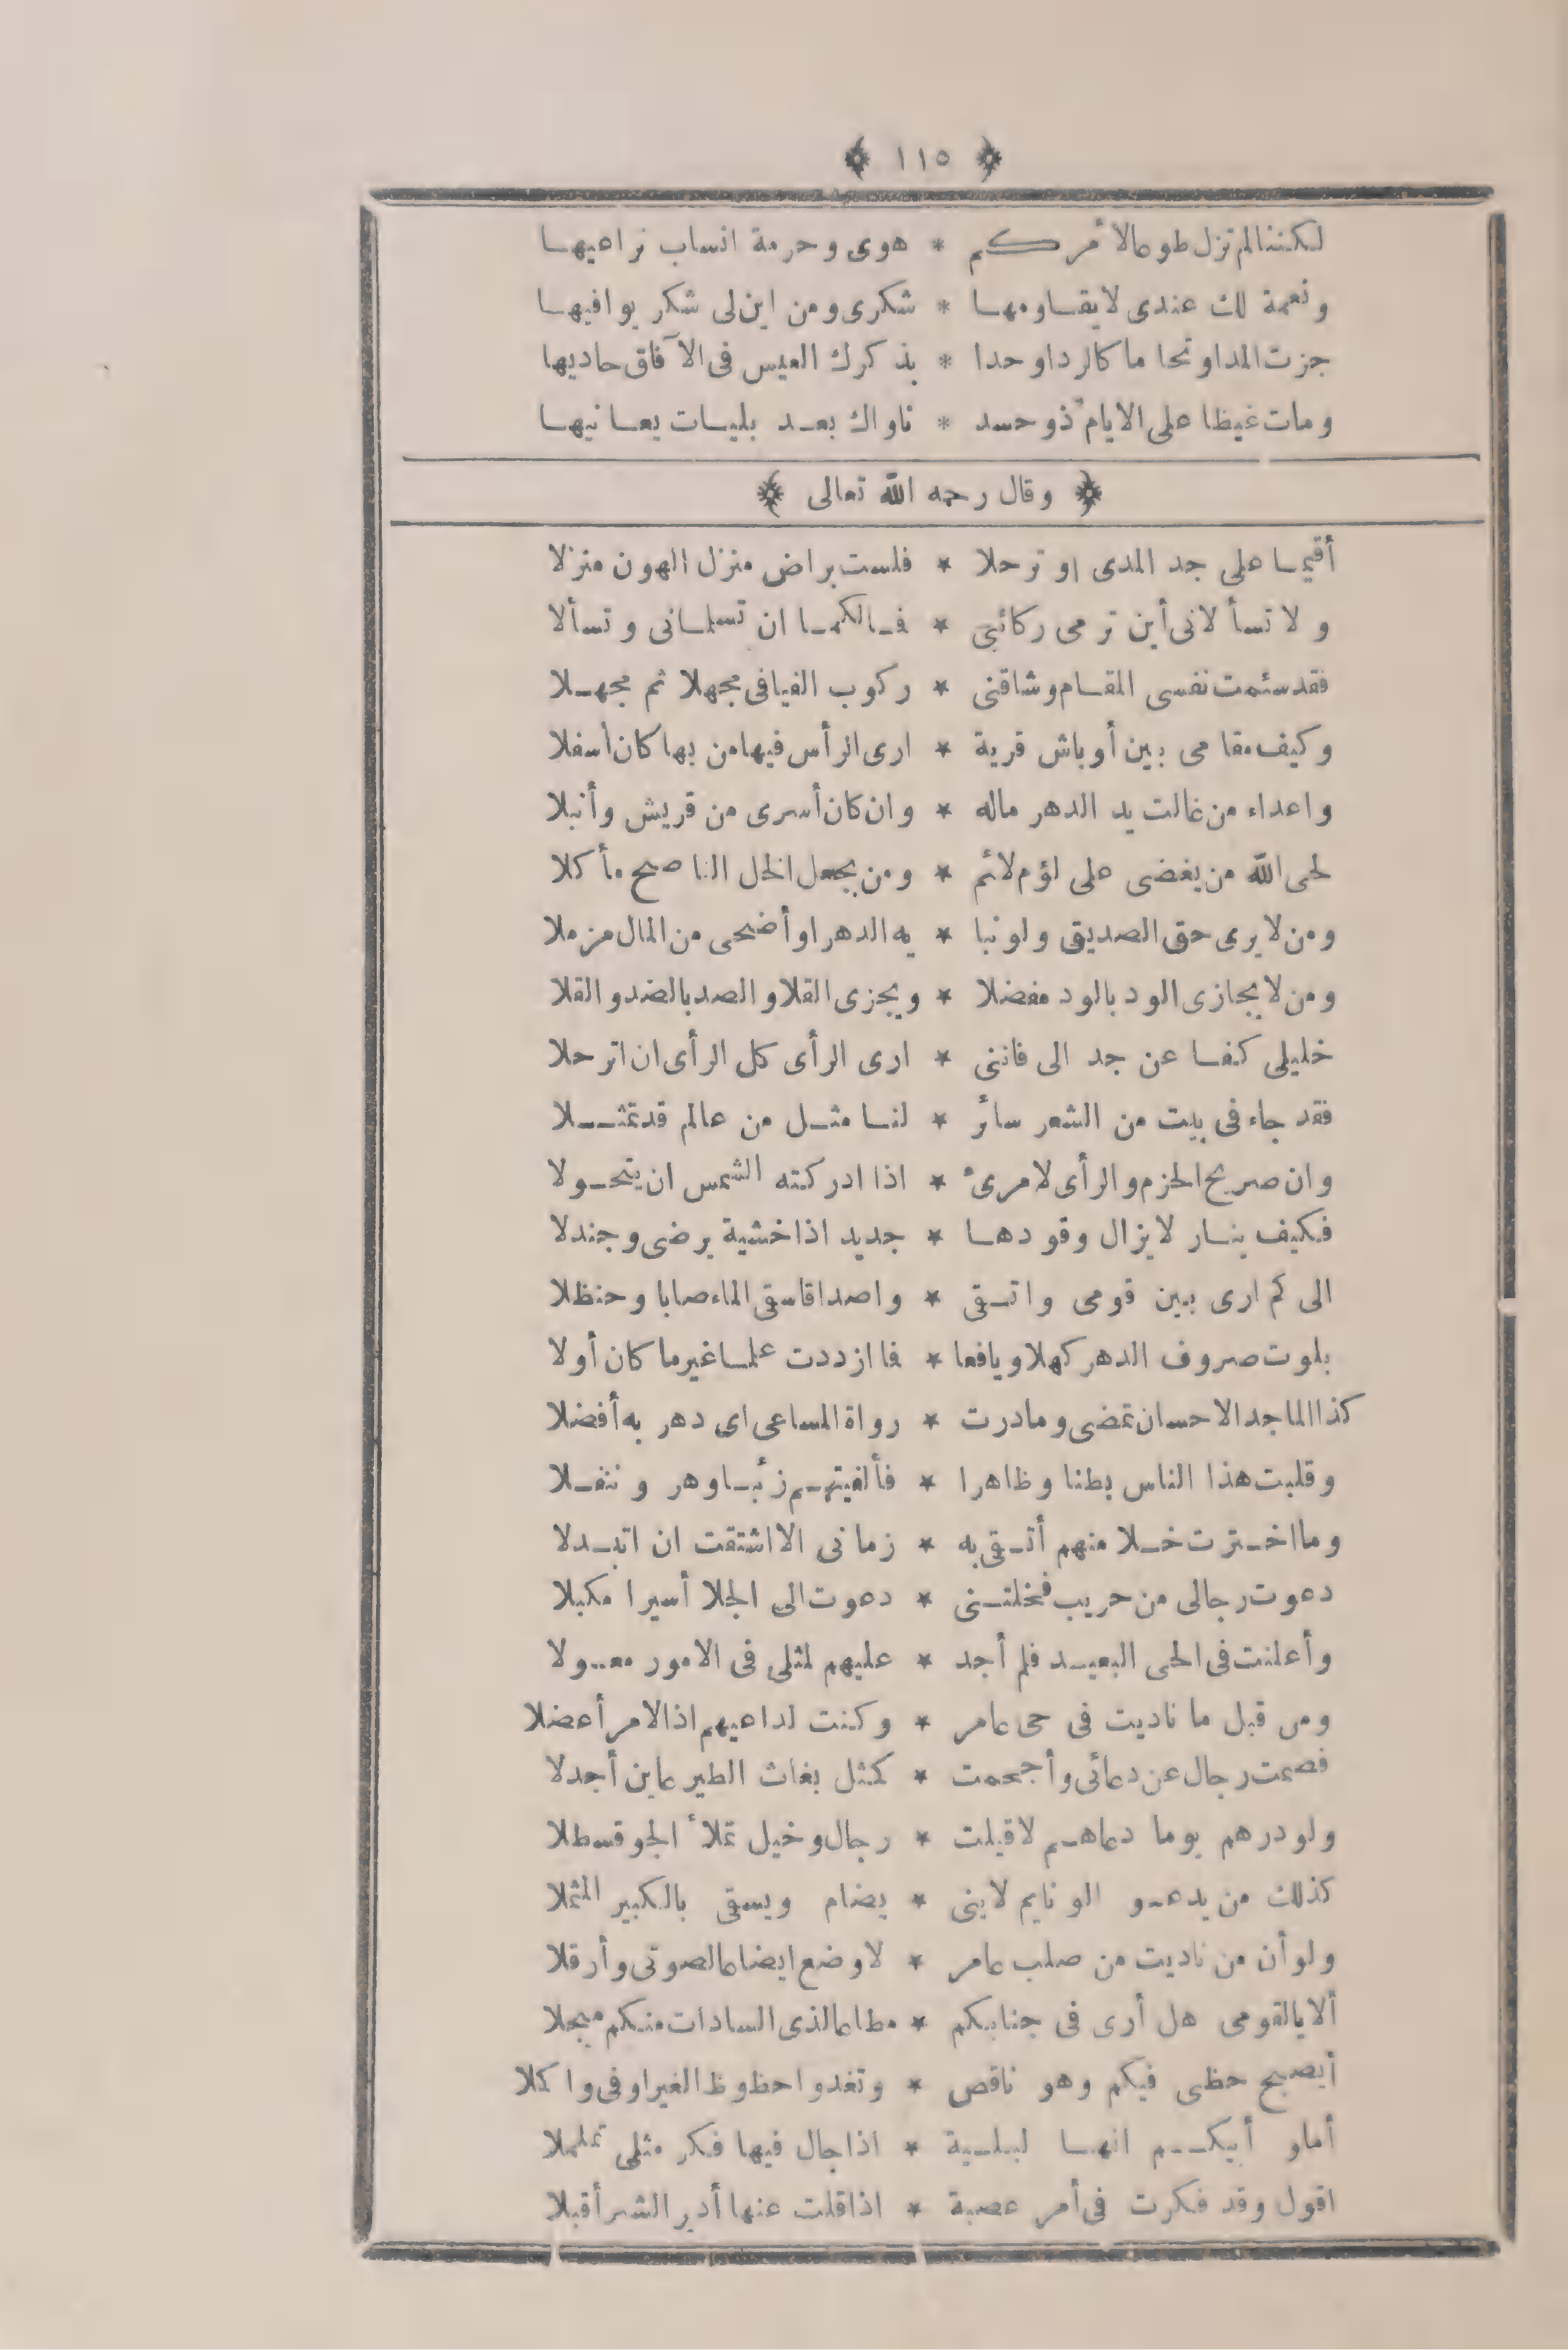 ﴿ ١١٥ ﴾
لكننا لم نزل طوعا لأمركم * هوى وحرمة انساب نراعيها
ونعمة لك عندى لا يقاومها * شكرى ومن اين لى شكر يوافيها
جزت المدا وتحاما كالردا وحدا * بذكرك العيس فى الآفاق حاديها
ومات غيظا على الايام ذو حسد * ناواك بعد بليات يعانيها
﴿ وقال رحمه الله تعالى ﴾
أقيما على جد المدى او ترحلا * فلست براض منزل الهون منزلا
ولا تسألانى أين ترمى ركائبى * فمالكما ان تسلمانى وتسألا
فقد سئمت نفسى المقام وشاقنى * ركوب الفيافى مجهلا ثم مجهلا
وكيف مقامى بين أوباش قرية * ارى الرأس فيها من بها كان أسفلا
واعداء من غالت يد الدهر ماله * وان كان أسرى من قريش وأنبلا
لحى الله من يغضى على لؤم لائم * ومن يجعل الخل الناصح مأكلا
ومن لا يرى حق الصديق ولو نبا * به الدهر او أضحى من المال مزملا
ومن لا يجازى الود بالود مفضلا * ويجزى القلا والصد بالضد والقلا
خليلى كفا عن جد الى فاننى * ارى الرأى كل الرأى ان اترحلا
فقد جاء فى بيت من الشعر سائر * لنا مثل من عالم قد تمثلا
وان صريح الحزم والرأى لامرئ * اذا ادركته الشمس ان يتحولا
فكيف بنار لا يزال وقودها * جديد اذا خشية يرضى وجندلا
الى كم ارى بين قومى واتقى * واصدا فاسقى الماء صابا وحنظلا
بلوت صروف الدهر كهلا ويافعا * فما ازددت علما غير ما كان أولا
كذا الماجد الاحسان تمضى وما درت * رواة المساعى اى دهر به أفضلا
وقلبت هذا الناس بطنا وظاهرا * فألفيتهم زئبا وهر وتتفلا
وما اخترت خلا منهم أتقى به * زمانى الا اشتقت ان اتبدلا
دعوت رجالى من حريب فخلتنى * دعوت الى الجلا أسيرا مكبلا
وأعلنت فى الحى البعيد فلم أجد * عليهم لمثلى فى الامور معولا
ومن قبل ما ناديت فى حى عامر * وكنت لداعيهم اذا الامر أعضلا
فصمت رجال عن دعائى وأجحمت * كمثل بغاث الطير عاين أجدلا
ولو درهم يوما دعاهم لاقبلت * رجال وخيل تملأ الجو قسطلا
كذلك من يدعو الونايم لاينى * يضام ويسقى بالكبير المثملا
ولو أن من ناديت من صلب عامر * لاوضع ايضاعا لصوتى وأرقلا
ألا يالقومى هل أرى فى جنابكم * مطاعا لذى السادات منكم مبجلا
أيصبح حظى فيكم وهو ناقص * وتغدوا حظوظ الغير اوفى واكملا
أما وأبيكم انها لبلية * اذا جال فيها فكر مثلى تململا
اقول وقد فكرت فى أمر عصبة * اذا قلت عنها أدبر الشر أقبلا